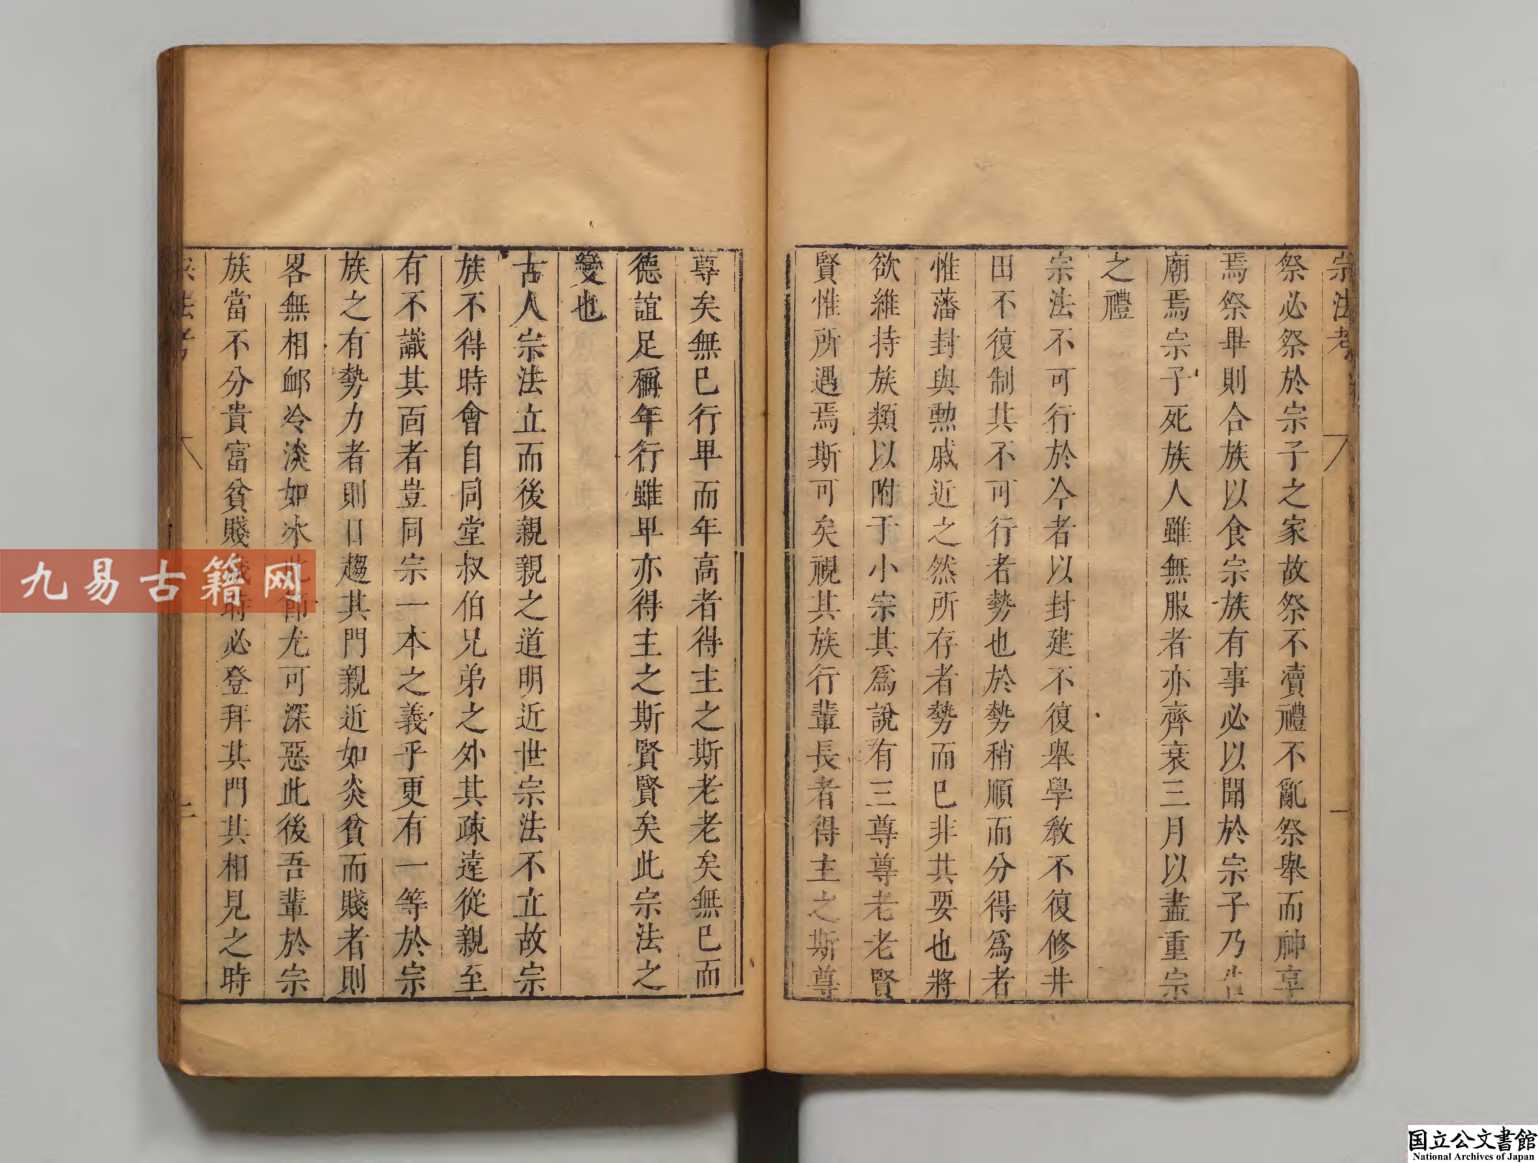 宗法考
一
祭必祭於宗子之家故祭不瀆禮不亂祭舉而神享
焉祭畢則合族以食宗族有事必以聞於宗子乃告
廟焉宗子死族人雖無服者亦齊衰三月以盡重宗
之禮
宗法不可行於今者以封建不復舉學教不復修井
田不復制其不可行者勢也於勢稍順而分得爲者
惟藩封與勲戚近之然所存者勢而已非其要也將
欲維持族類以附于小宗其爲說有三尊尊老老賢
賢惟所遇焉斯可矣視其族行輩長者得主之斯尊
尊矣無已行卑而年高者得主之斯老老矣無已而
德誼足稱年行雖卑亦得主之斯賢賢矣此宗法之
變也
古人宗法立而後親親之道明近世宗法不立故宗
族不得時會自同堂叔伯兄弟之外其疎遠從親至
有不識其面者豈同宗一本之義乎更有一等於宗
族之有勢力者則日趨其門親近如炎貧而賤者則
畧無相卹冷淡如冰尤可深惡此後吾輩於宗
族當不分貴富貧賤時必登拜其門其相見之時
九易古籍网
国立公文書館
National Archives of Japan